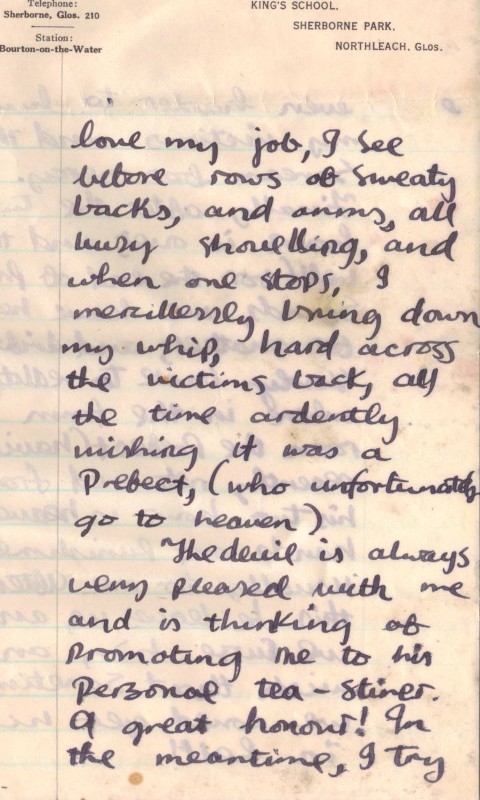 Telephone:
Sherborne, Glos. 210
Station:
Bourton-on-the-Water
KING'S SCHOOL,
SHERBORNE PARK,
NORTHLEACH, GLOS.
love my job, I see
before rows of sweaty
backs, and arms, all
busy shovelling, and
when one stops, I
mercilessly bring down
my whip, hard across
the victims back, all
the time ardently
wishing it was a
Prefect, (who unfortunately
go to heaven)
"The devil is always
very pleased with me
and is thinking of
promoting me to his
personal tea-stirrer.
A great honour! In
the meantime, I try